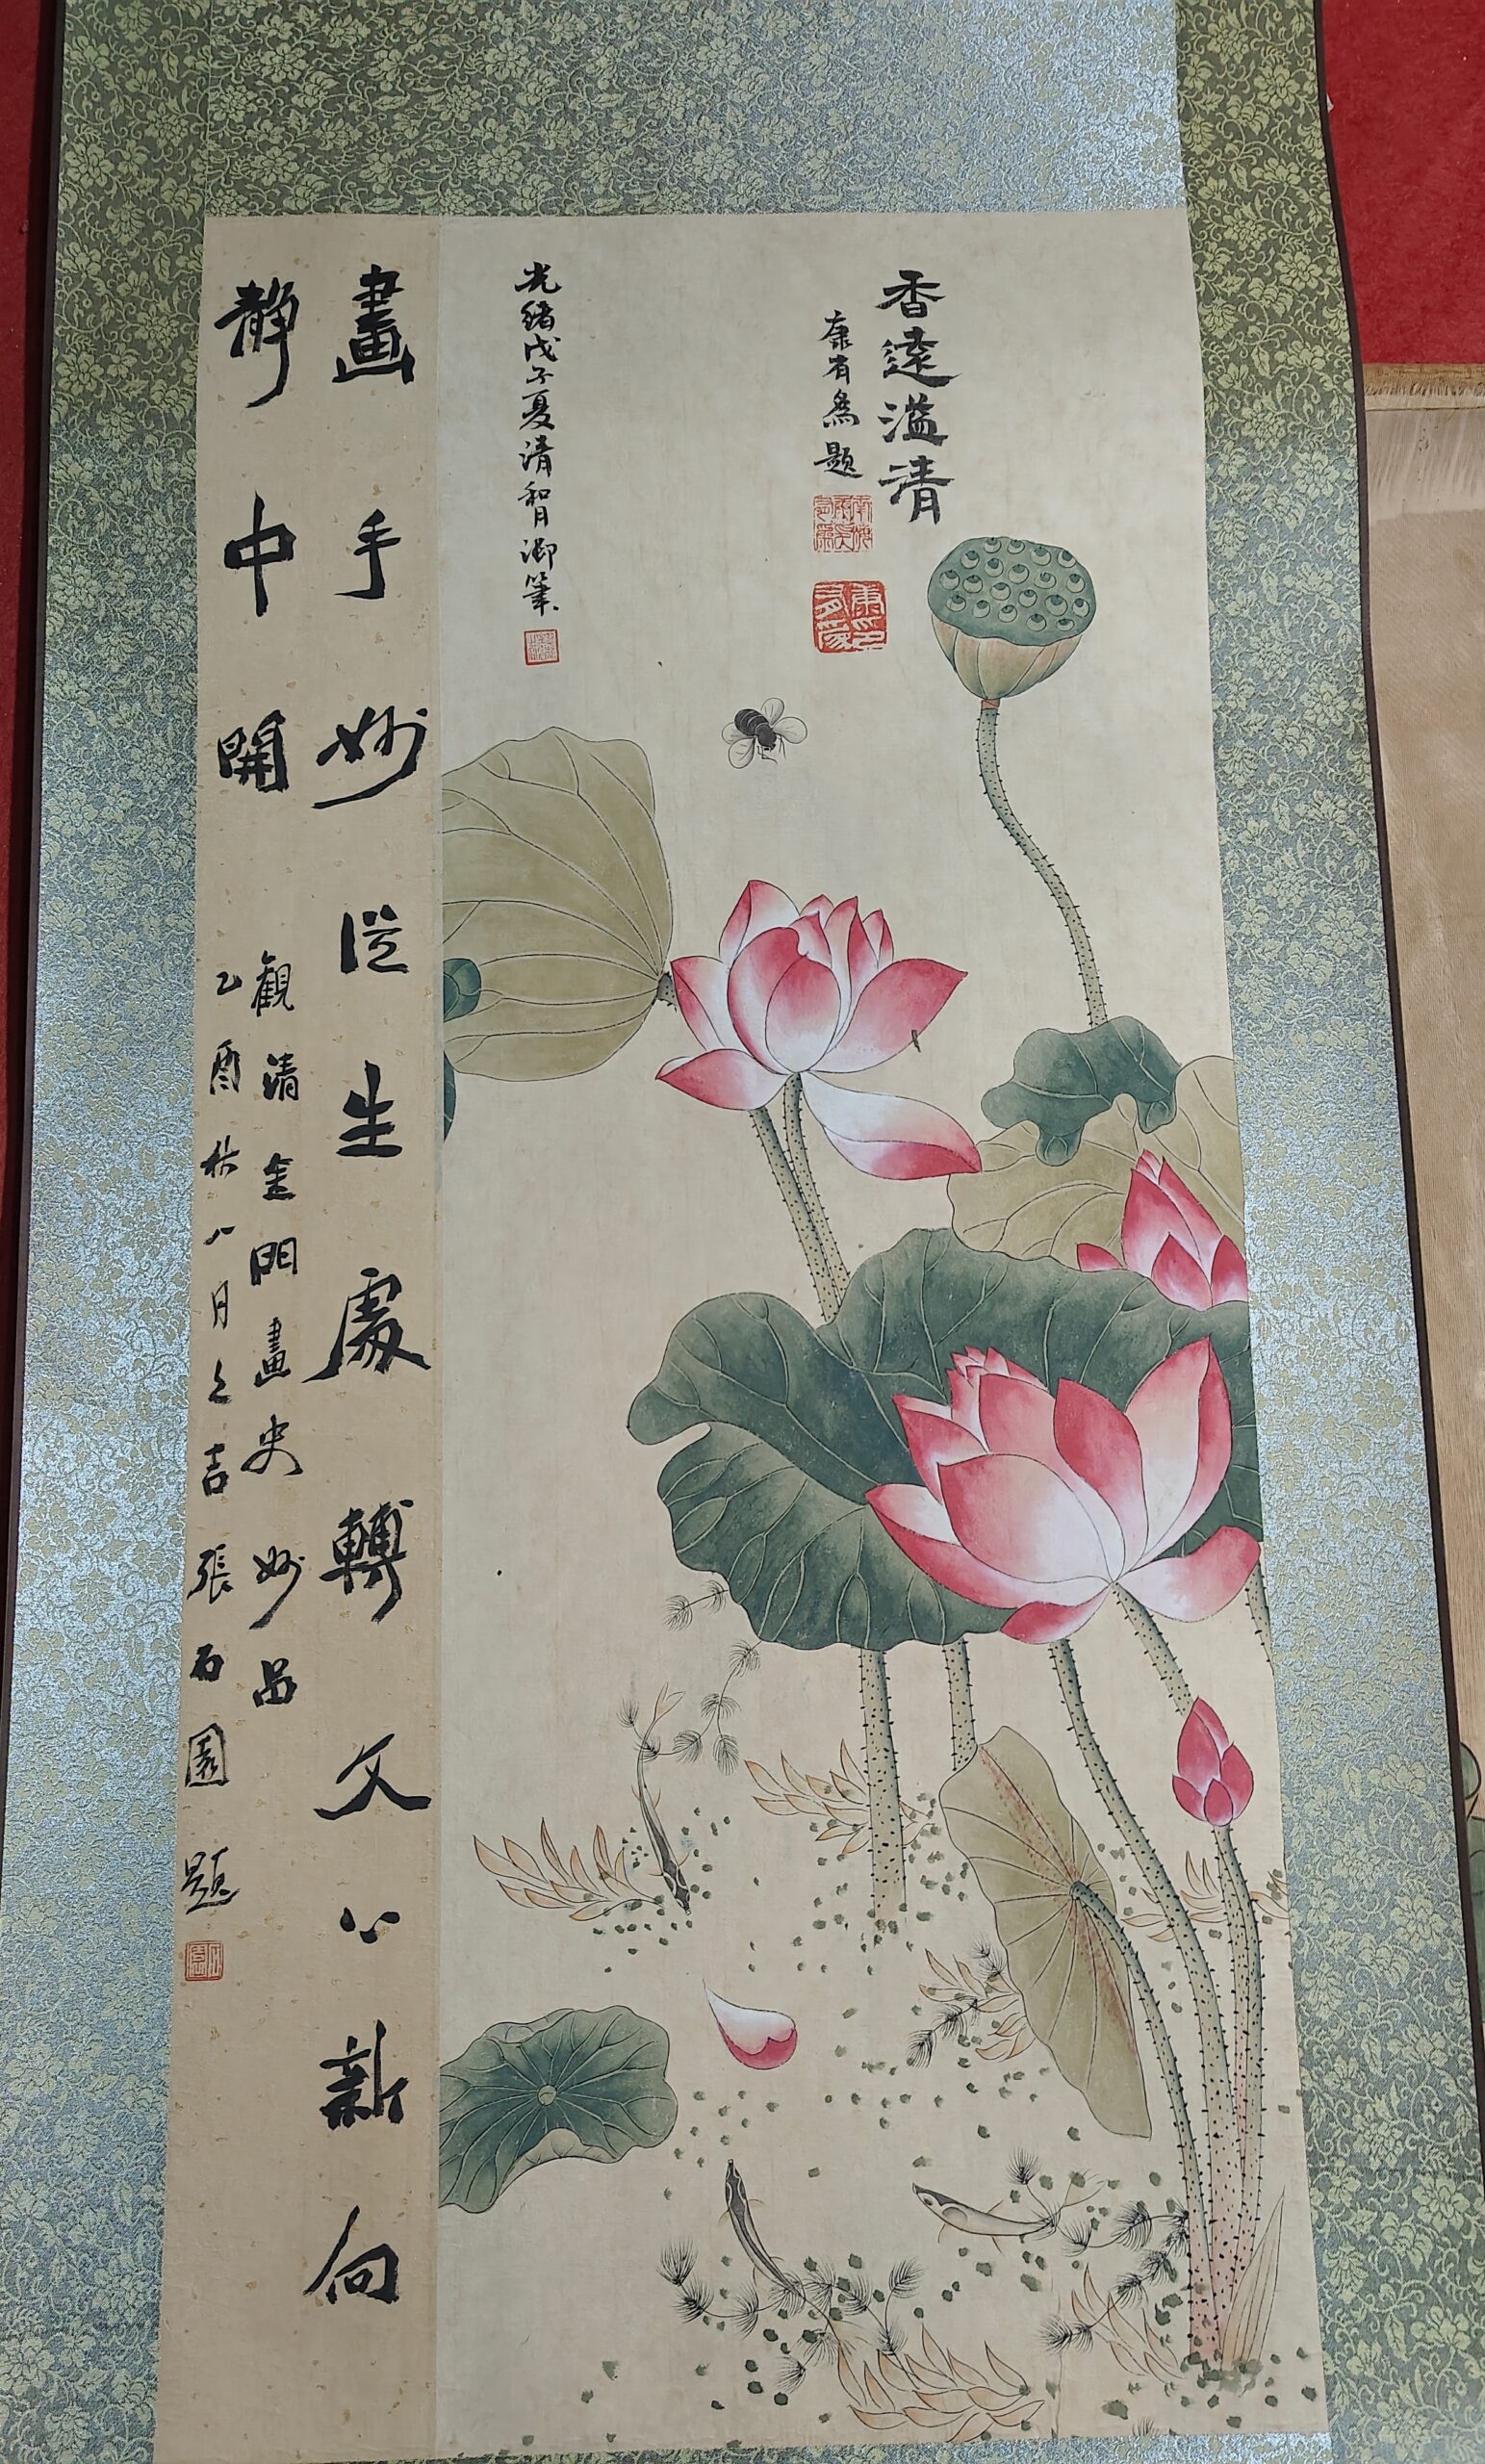 香遠溢清
康有為題
光緒戊子夏清和月御筆
畫手妙從生處轉文心新向
靜中開
觀清金門畫史妙品
乙酉秋八月之吉張石園題
石園